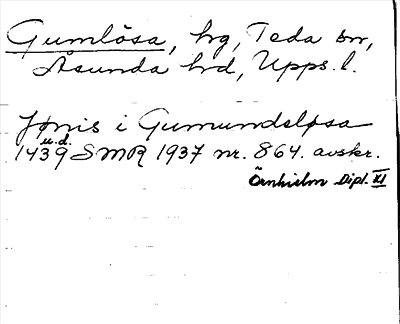 Gumlösa, hg, Teda sn,
Åsunda hd, Upps. l.
Jønis i Gumundsløsa
u.d.
1439 SMR 1937 nr. 864. avskr.
Örnhielm Dipl. XI